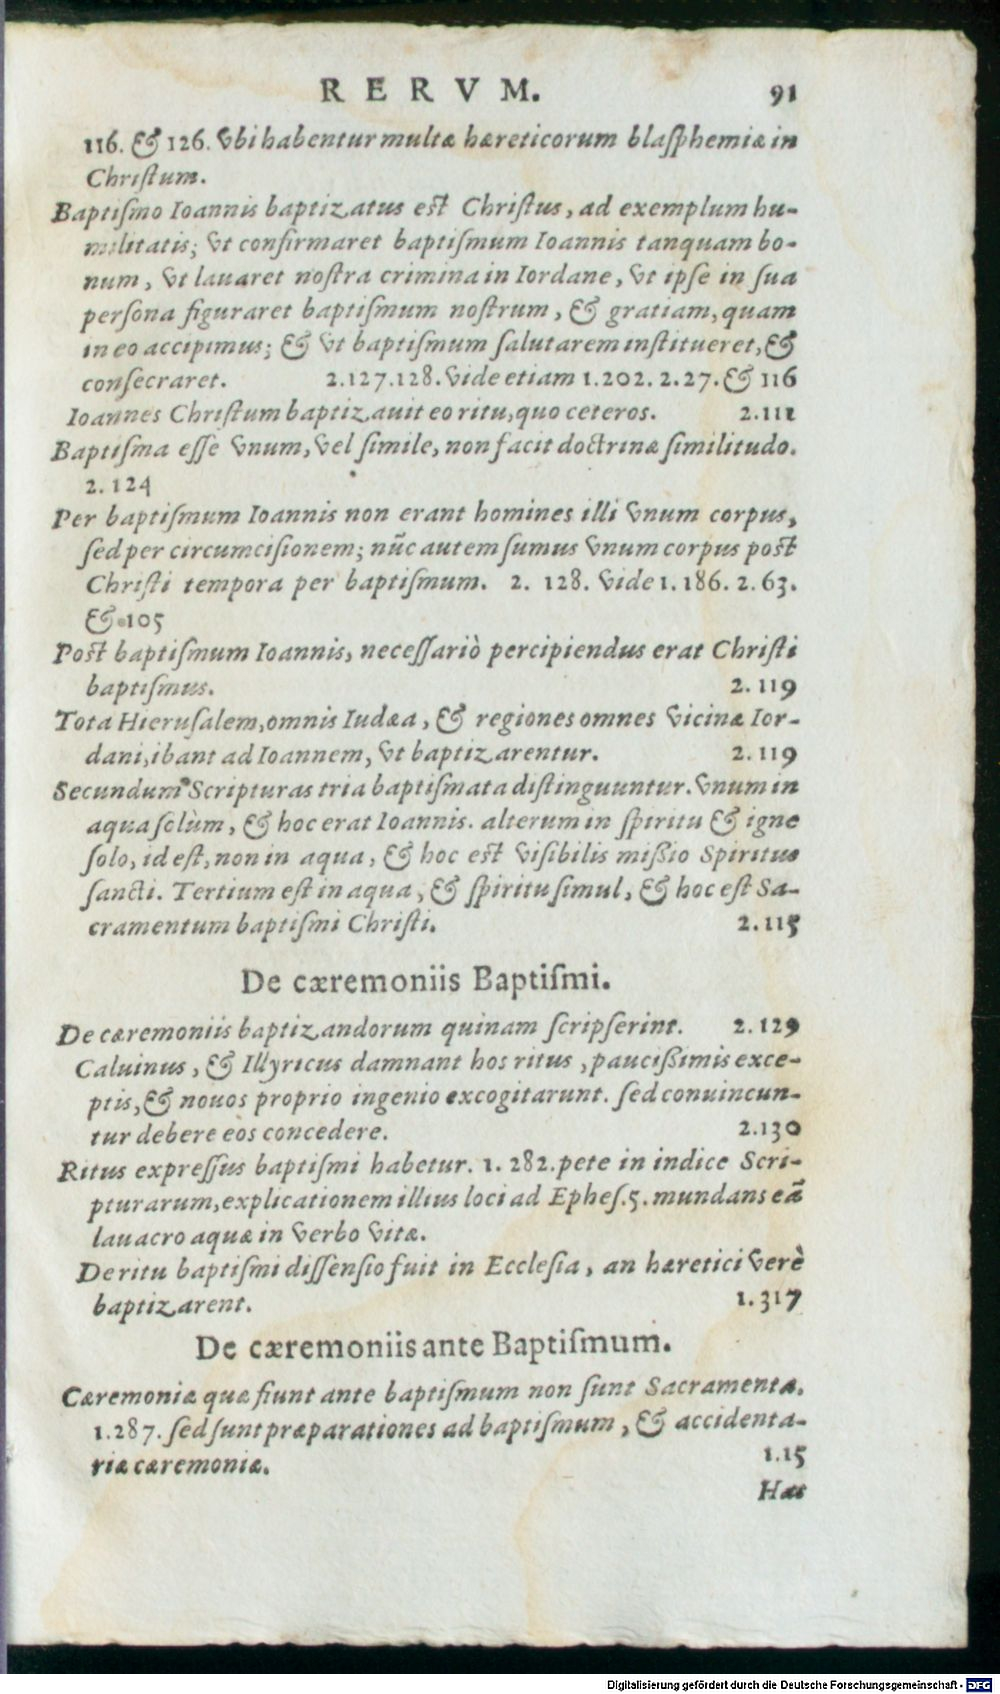 RERVM. 91
116. & 126. vbi habentur multæ hæreticorum blaſphemiæ in
Chriſtum.
Baptiſmo Ioannis baptizatus eſt Chriſtus, ad exemplum hu-
militatis; vt confirmaret baptiſmum Ioannis tanquam bo-
num, vt lauaret noſtra crimina in Iordane, vt ipſe in ſua
perſona figuraret baptiſmum noſtrum, & gratiam, quam
in eo accipimus; & vt baptiſmum ſalutarem inſtitueret, &
conſecraret. 2.127.128. vide etiam 1.202. 2.27. & 116
Ioannes Chriſtum baptizauit eo ritu, quo ceteros. 2.111
Baptiſma eſſe vnum, vel ſimile, non facit doctrinæ ſimilitudo.
2.124
Per baptiſmum Ioannis non erant homines illi vnum corpus,
ſed per circumciſionem; nūc autem ſumus vnum corpus poſt
Chriſti tempora per baptiſmum. 2. 128. vide 1. 186. 2. 63.
& 105
Poſt baptiſmum Ioannis, neceſſariò percipiendus erat Chriſti
baptiſmus. 2.119
Tota Hieruſalem, omnis Iudæa, & regiones omnes vicinæ Ior-
dani, ibant ad Ioannem, vt baptizarentur. 2.119
Secundum Scripturas tria baptiſmata diſtinguuntur. vnum in
aqua ſolùm, & hoc erat Ioannis. alterum in ſpiritu & igne
ſolo, id eſt, non in aqua, & hoc eſt viſibilis miſsio Spiritus
ſancti. Tertium eſt in aqua, & ſpiritu ſimul, & hoc eſt Sa-
cramentum baptiſmi Chriſti. 2.115
De cæremoniis Baptiſmi.
De cæremoniis baptizandorum quinam ſcripſerint. 2.129
Caluinus, & Illyricus damnant hos ritus, pauciſsimis exce-
ptis, & nouos proprio ingenio excogitarunt. ſed conuincun-
tur debere eos concedere. 2.130
Ritus expreſſus baptiſmi habetur. 1. 282. pete in indice Scri-
pturarum, explicationem illius loci ad Epheſ.5. mundans eã
lauacro aquæ in verbo vitæ.
De ritu baptiſmi diſſenſio fuit in Eccleſia, an hæretici verè
baptizarent. 1.317
De cæremoniis ante Baptiſmum.
Cæremoniæ quæ fiunt ante baptiſmum non ſunt Sacramenta.
1.287. ſed ſunt præparationes ad baptiſmum, & accidenta-
riæ cæremoniæ. 1.15
Hæc
Digitalisierung gefördert durch die Deutsche Forschungsgemeinschaft - DFG